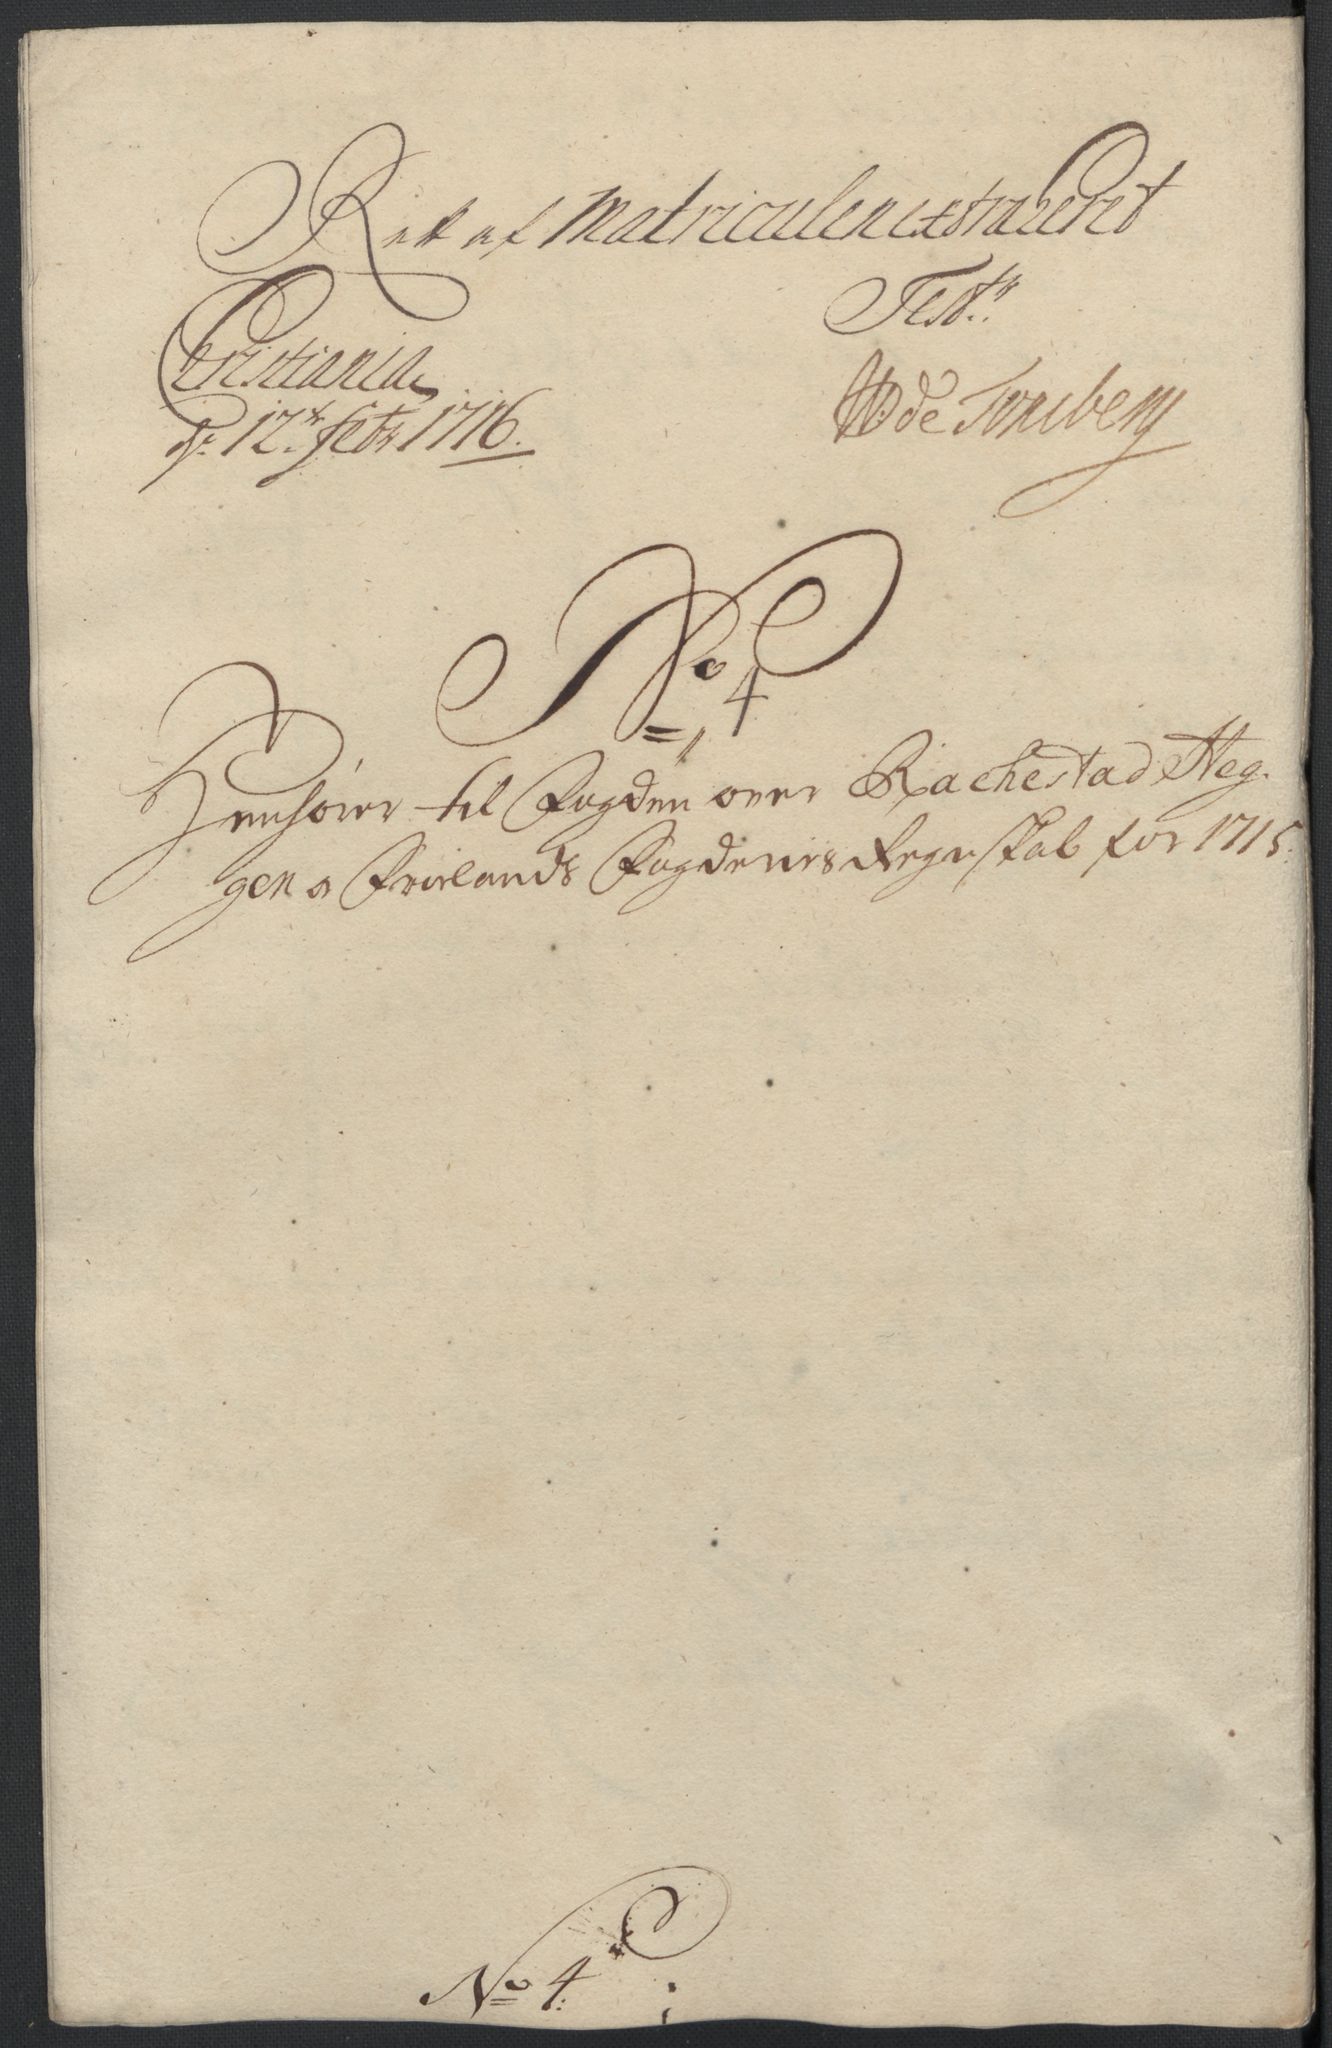 Rett af Matriculen extraheret
Testr.
Christiania
dr. 12te. febr 1716.
WdeTonsberg
No. 4
Henhører til Fogden over Rachestad Heg-
gen o Frølands Fogderies Regnskab for 1715.
No 4.